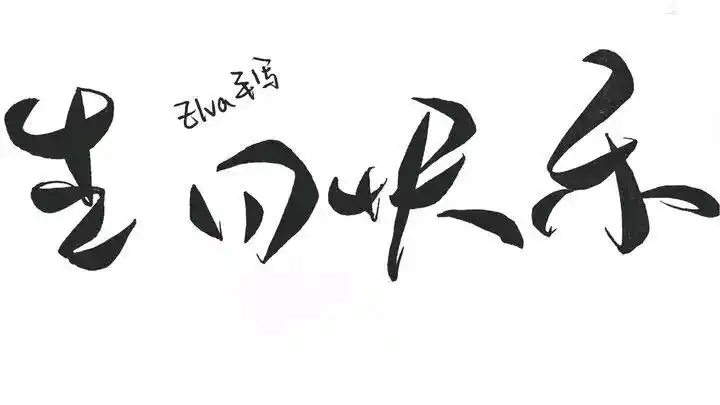 Elva手写
生日快乐